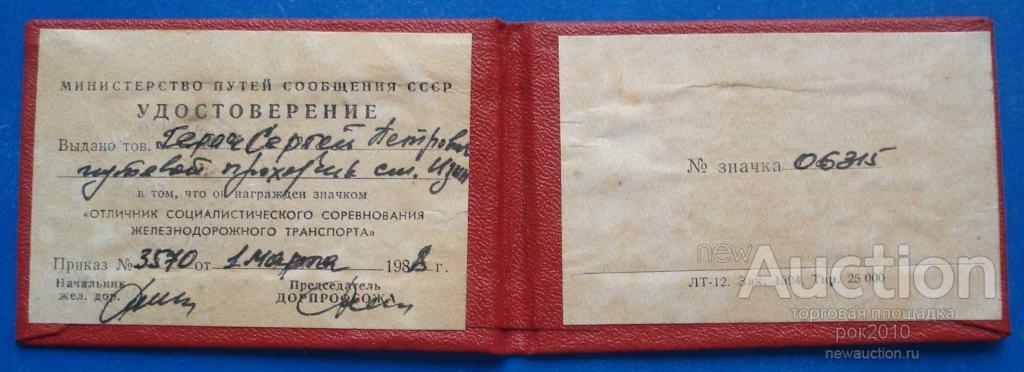 МИНИСТЕРСТВО ПУТЕЙ СООБЩЕНИЯ СССР
УДОСТОВЕРЕНИЕ
Выдано тов. Сергей Петрович
путевой ст.
в том, что он награжден значком
«ОТЛИЧНИК СОЦИАЛИСТИЧЕСКОГО СОРЕВНОВАНИЯ
ЖЕЛЕЗНОДОРОЖНОГО ТРАНСПОРТА»
Приказ № 3570 от 1 марта 1988 г.
Начальник
жел. дор.
Председатель
ДОРПРОФСОЖА
№ значка 06315
ЛТ-12. Зак. 1394. Тир. 25 000
newAuction
торговая площадка
рок2010
newauction.ru